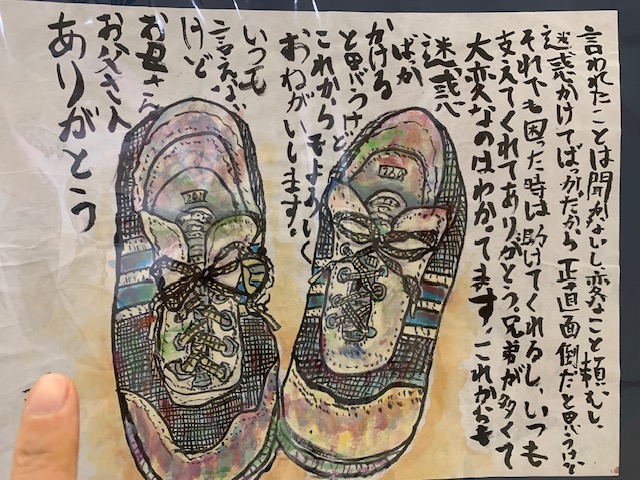 言われたことは聞かないし変なこと頼むし、
迷惑かけてばっかだから正直面倒だと思うけど
それでも困った時は助けてくれるし、いつも
支えてくれてありがとう兄弟が多くて
大変なのはわかってます、これからも
迷惑
ばっか
かける
と思うけど
これからもよろしく
おねがいします。
いつも
言えない
けど
お母さん
お父さん
ありがとう